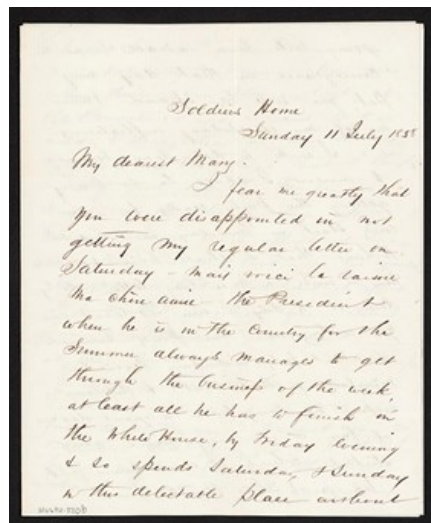 Soldiers Home
Sunday 11 July 1858
My dearest Mary.
I fear me greatly that
you were disappointed in not
getting my regular letter on
Saturday - mais voici la raison
Ma chère amie - the President
when he is in the Country for the
Summer always manages to get
through the business of the week,
at least all he has to finish in
the White House, by Friday evening
& so spends Saturday, & Sunday
in this delectable place without